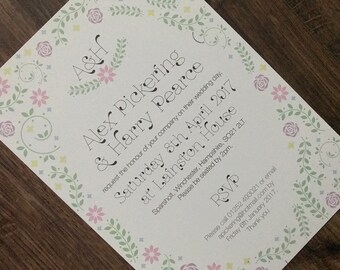 A&H
Alex Pickering
& Harry Pearce
request the honour of your company on their wedding day,
Saturday 8th April 2017
at Lainston House
Sparsholt, Winchester, Hampshire, SO21 2LT.
Please be seated by 2pm.
RSVP
Please call 01252 620021 or email
apickering@gmail.com by
Friday 6th January 2017.
Thank you